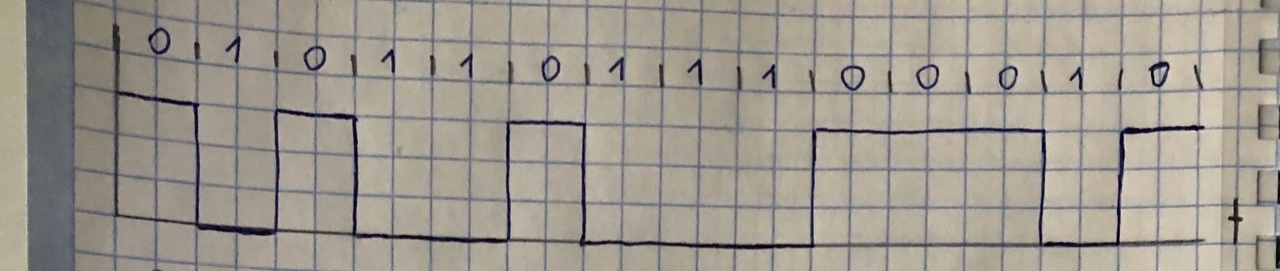 0 1 0 1 1 0 1 1 1 0 0 0 1 0
t